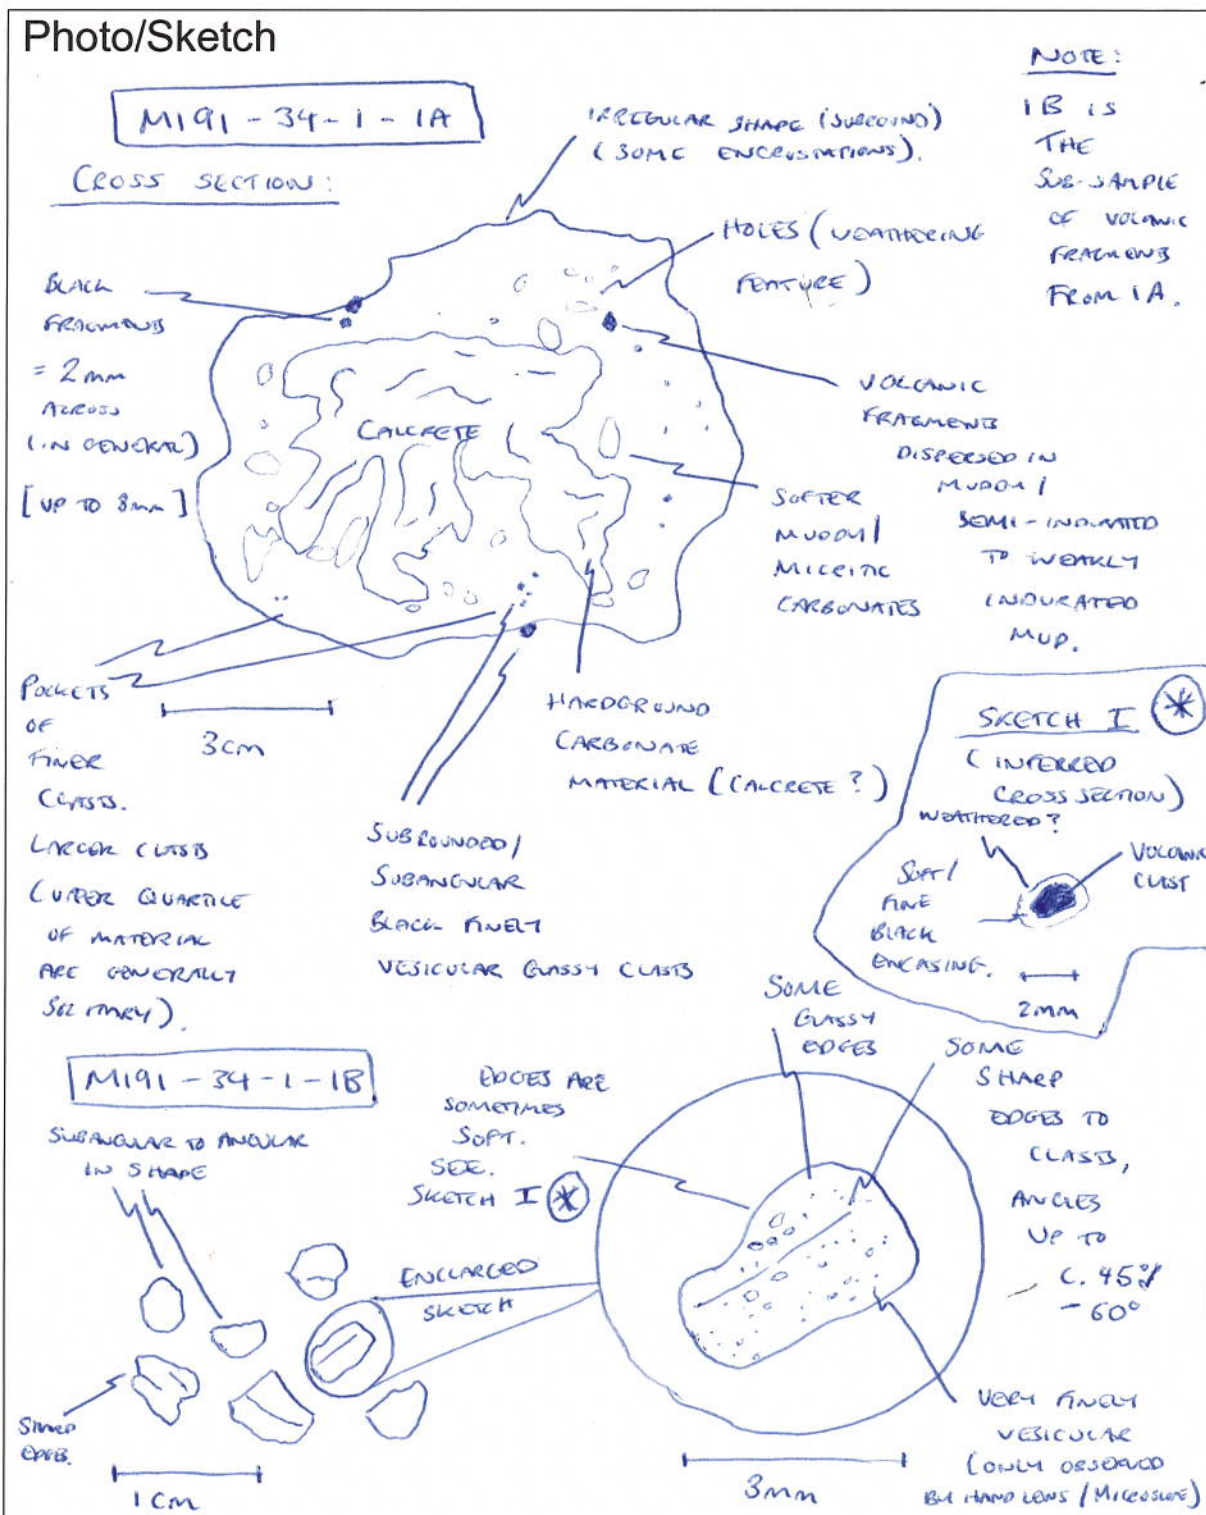 Photo/Sketch
M191-34-1-1A
CROSS SECTION:
IRREGULAR SHAPE (SURROUND)
(SOME ENCRUSTATIONS).
NOTE:
1B IS
THE
SUB-SAMPLE
OF VOLCANIC
FRAGMENTS
FROM 1A.
HOLES (WEATHERING
FEATURE)
BLACK
FRAGMENTS
= 2mm
ACROSS
(IN GENERAL)
[UP TO 8mm]
CALCRETE
VOLCANIC
FRAGMENTS
DISPERSED IN
MUDDY/
SEMI-INDURATED
TO WEAKLY
INDURATED
MUD.
SOFTER
MUDDY/
MICRITIC
CARBONATES
POCKETS
OF
FINER
CLASTS.
LARGER CLASTS
(UPPER QUARTILE
OF MATERIAL
ARE GENERALLY
SOLITARY).
3cm
SUBROUNDED/
SUBANGULAR
BLACK FINELY
VESICULAR GLASSY CLASTS
HARDGROUND
CARBONATE
MATERIAL (CALCRETE?)
SKETCH I *
(INFERRED
CROSS SECTION)
WEATHERED?
VOLCANIC
CLAST
SOFT/
FINE
BLACK
ENCASING.
2mm
M191-34-1-1B
SUBANGULAR TO ANGULAR
IN SHAPE
SHARP
EDGES.
1cm
ENLARGED
SKETCH
EDGES ARE
SOMETIMES
SOFT.
SEE.
SKETCH I *
SOME
GLASSY
EDGES
SOME
SHARP
EDGES TO
CLASTS,
ANGLES
UP TO
C. 45°
-60°
VERY FINELY
VESICULAR
(ONLY OBSERVED
BY HAND LENS/MICROSCOPE)
3mm